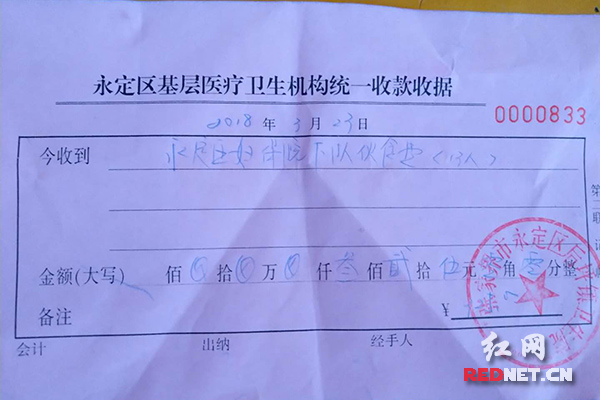 永定区基层医疗卫生机构统一收款收据
0000833
2018年3月23日
今收到 永定区妇保院下队伙食费(13人)
金额(大写) 佰 拾 万 仟叁佰贰拾伍元 角零分整
备注 ¥
会计 出纳 经手人
第二联
红网
REDNET.CN